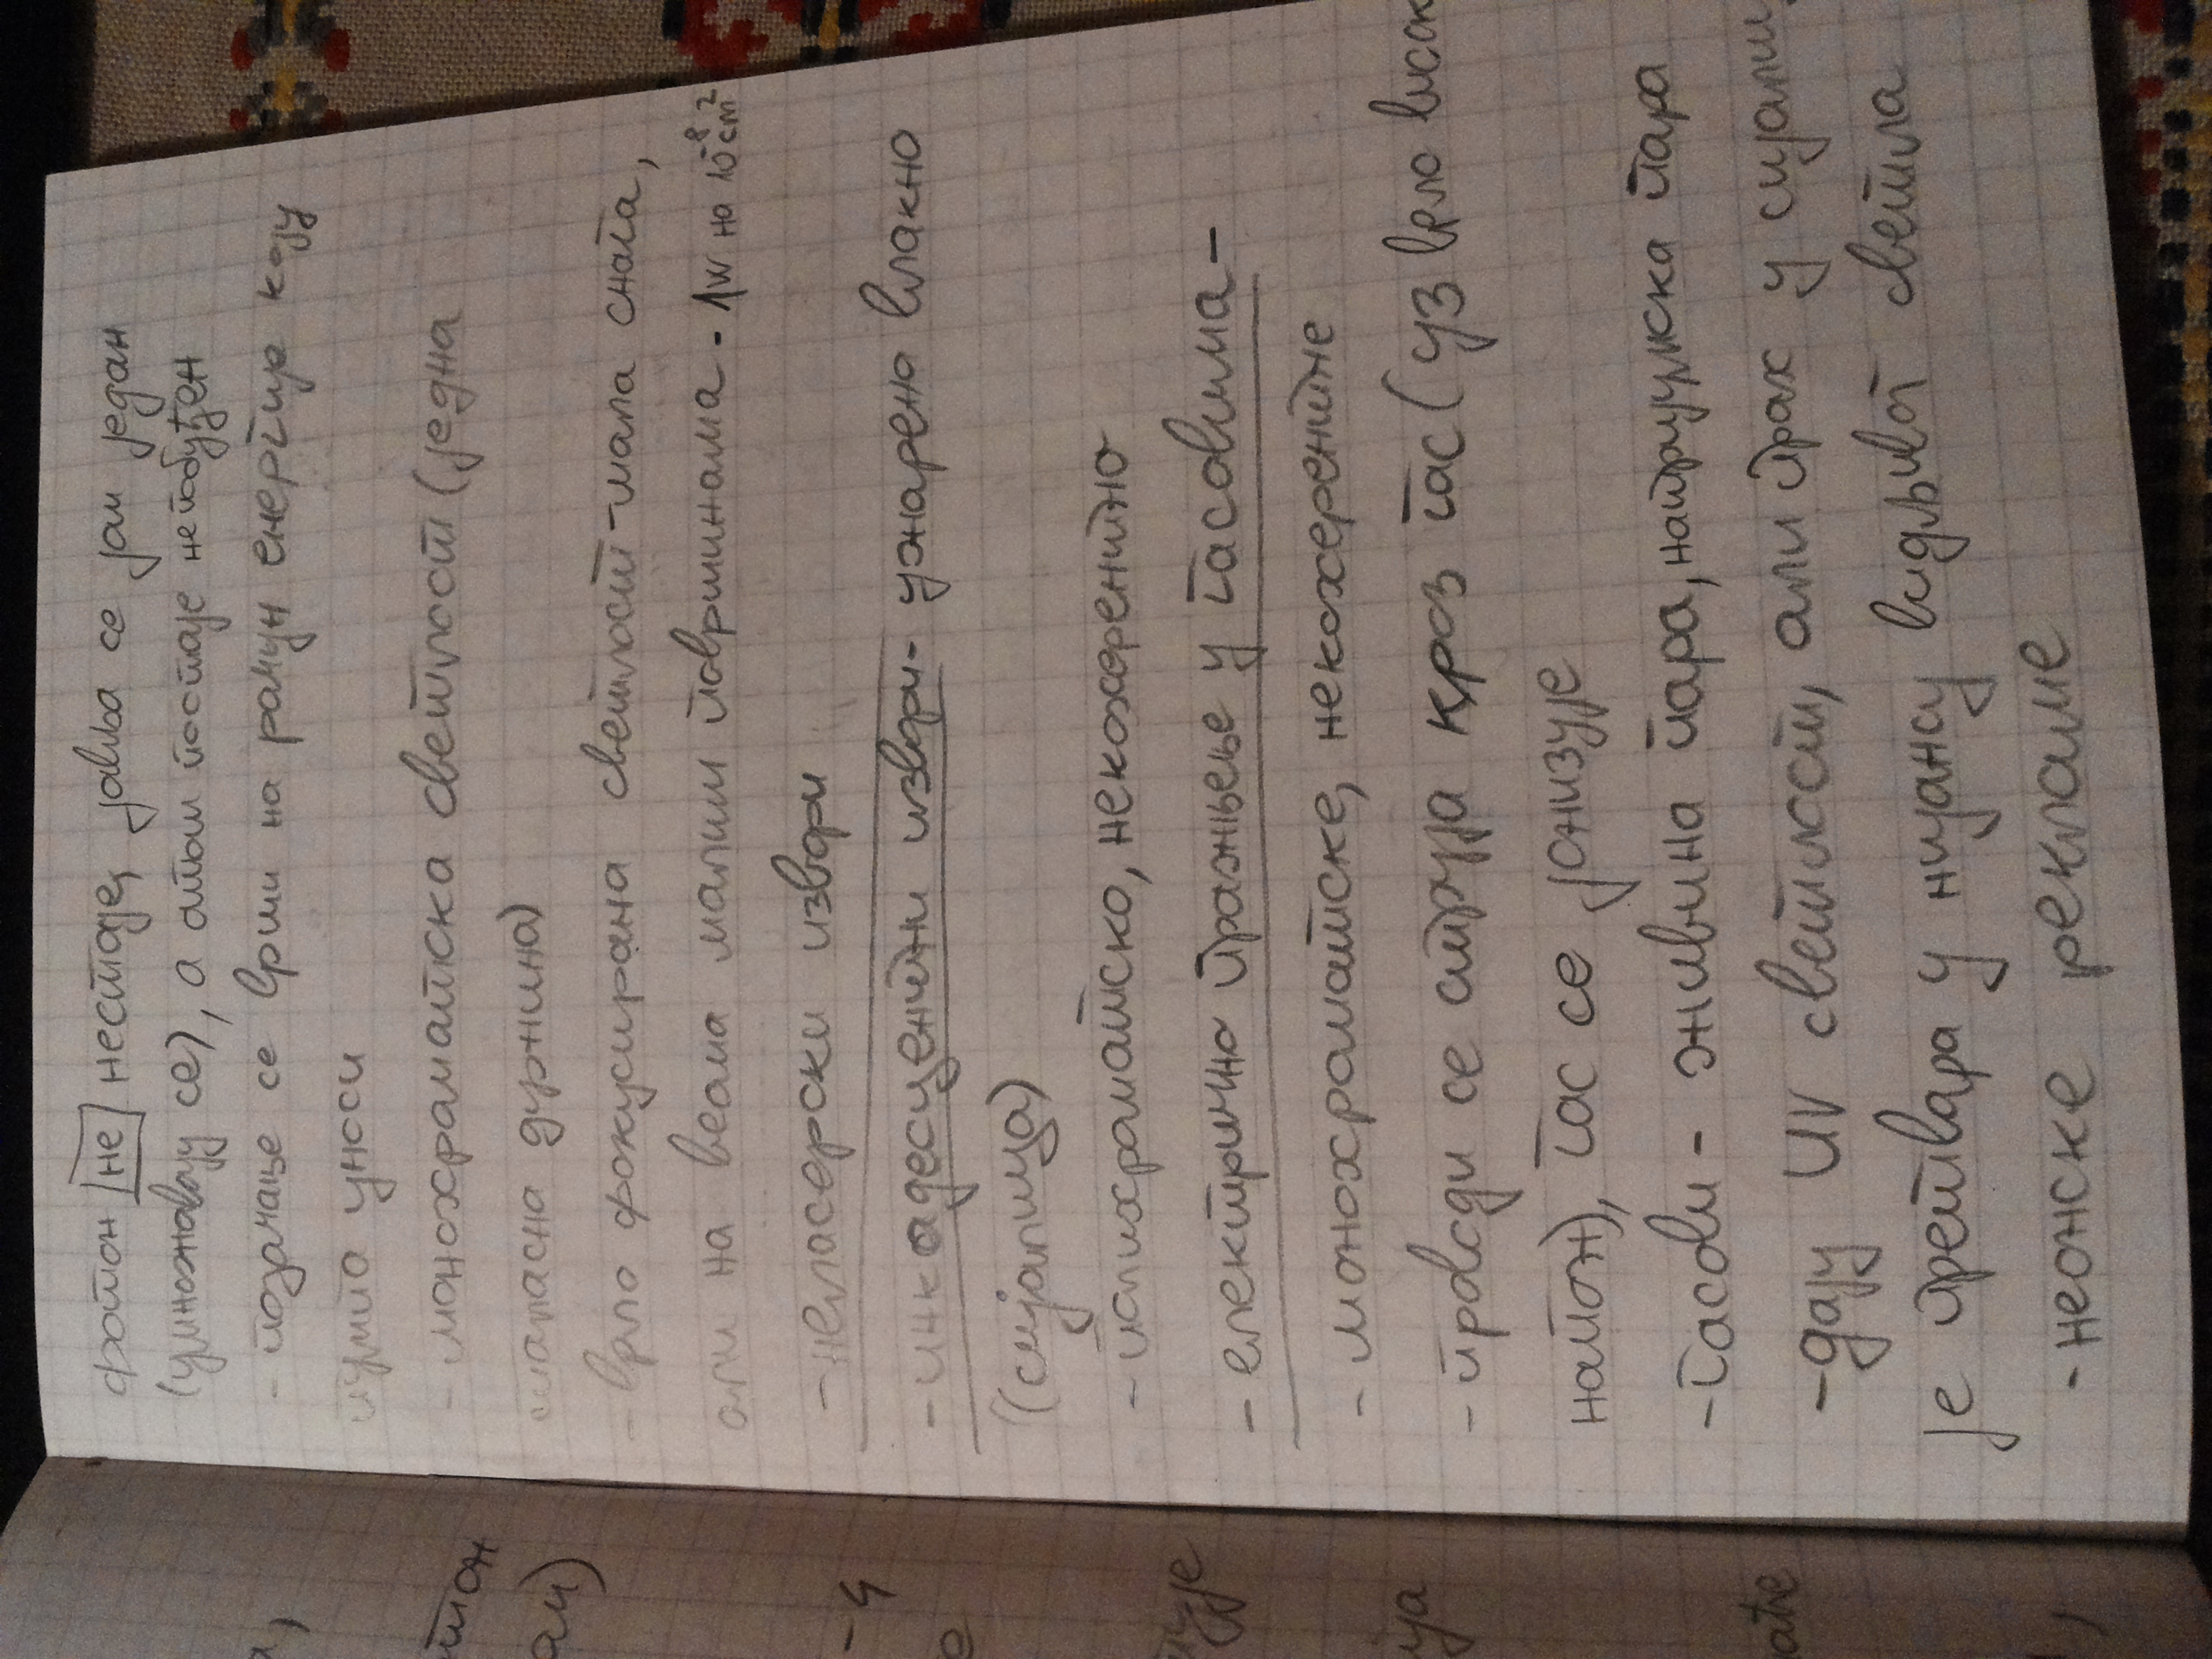 фотон не нестаје, јавља се јом један
(умножавају се), а атом постаје непобуђен
- појачање се врши на рачун енергије коју
пумпа уноси
- монохроматска светлост (једна
таласна дужина)
- врло фокусирана светлост - мала снага,
али на веома малим површинама - 1W на 10⁻⁸cm²
- неласерски извори
- инкадесцентни извори - ужарено влакно
(сијалица)
- полихроматско, некохерентно
- електрично пражњење у гасовима -
- монохроматске, некохерентне
- проводи се струја кроз гас (уз врло висок
напон), гас се јонизује
- гасови - живина пара, натријумска пара
- дају UV светлост, али прах у сијалиц
је претвара у нијансу видљивог светла
- неонске рекламе